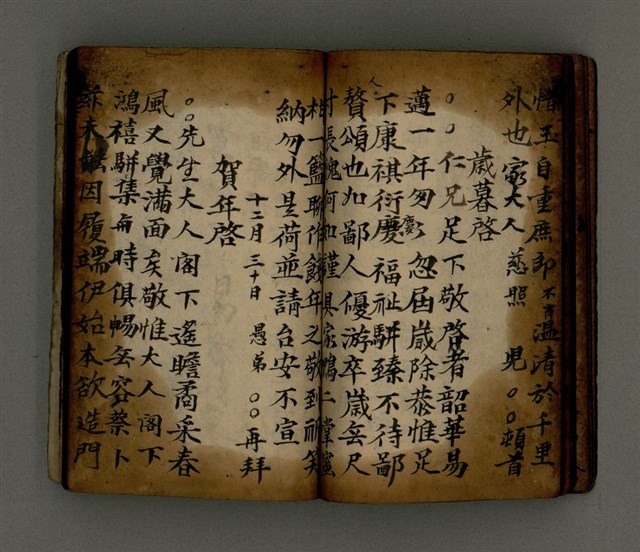 惜玉自重庶即不肖溫清於千里
外也家大人 慈照 兒○○頓首
歲暮啓
○○仁兄足下敬啓者韶華易
邁一年匆匆忽屆歲除恭惟足
下康祺衍慶福祉駢臻不待鄙
人
贅頌也如鄙人優游卒歲無尺
寸長愧何如謹具家鴨二掌蜜
柑一籃聊作餞年之敬到祈笑
納勿外是荷並請台安不宣
十二月三十日 愚弟 ○○再拜
賀年啓
○○先生大人閣下遙瞻喬采春
風又覺滿面矣敬惟大人閣下
鴻禧駢集與時俱暢無容蔡卜
辭未因履端伊始本欲造門